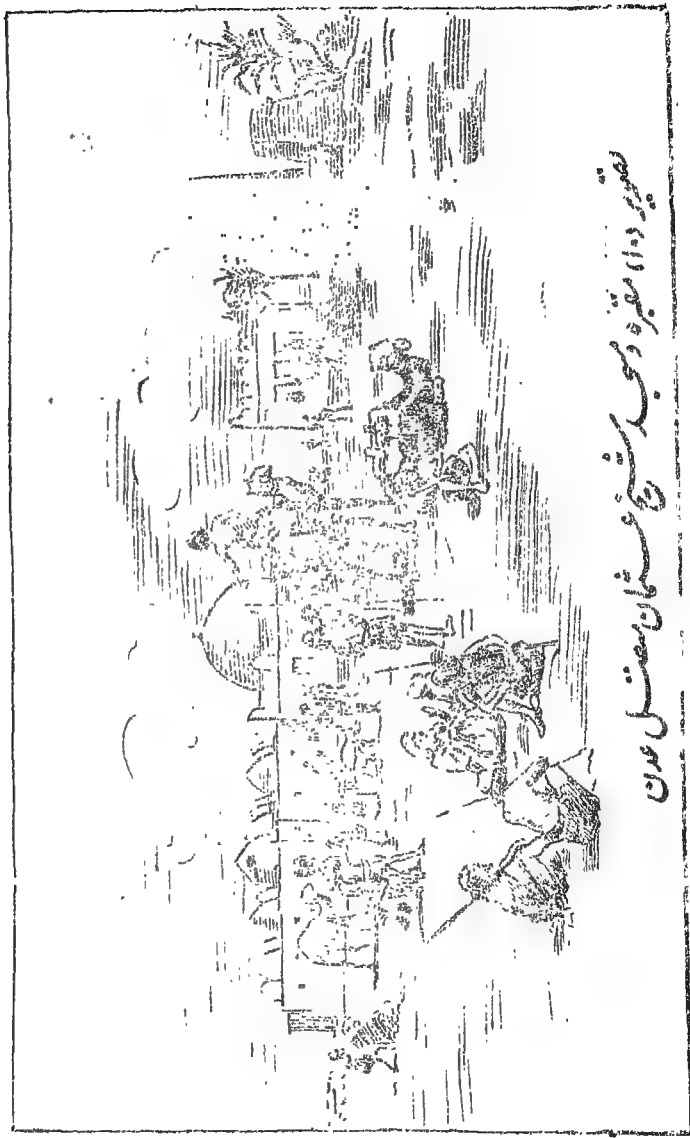 تصویر (۱۰) مقبرہ و مسجد شیخ عثمان متصل عدن